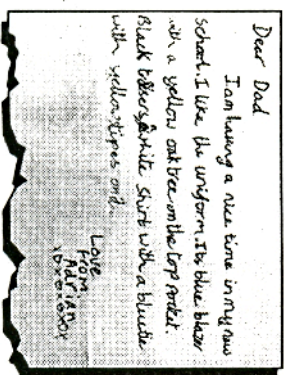 Dear Dad
I am having a nice time in my new
School. I like the uniform. Its blue blazer
with a yellow oak tree on the top pocket.
Black and white shirt with a blue tie
with yellow stipes on it.
Love
from
Adrian